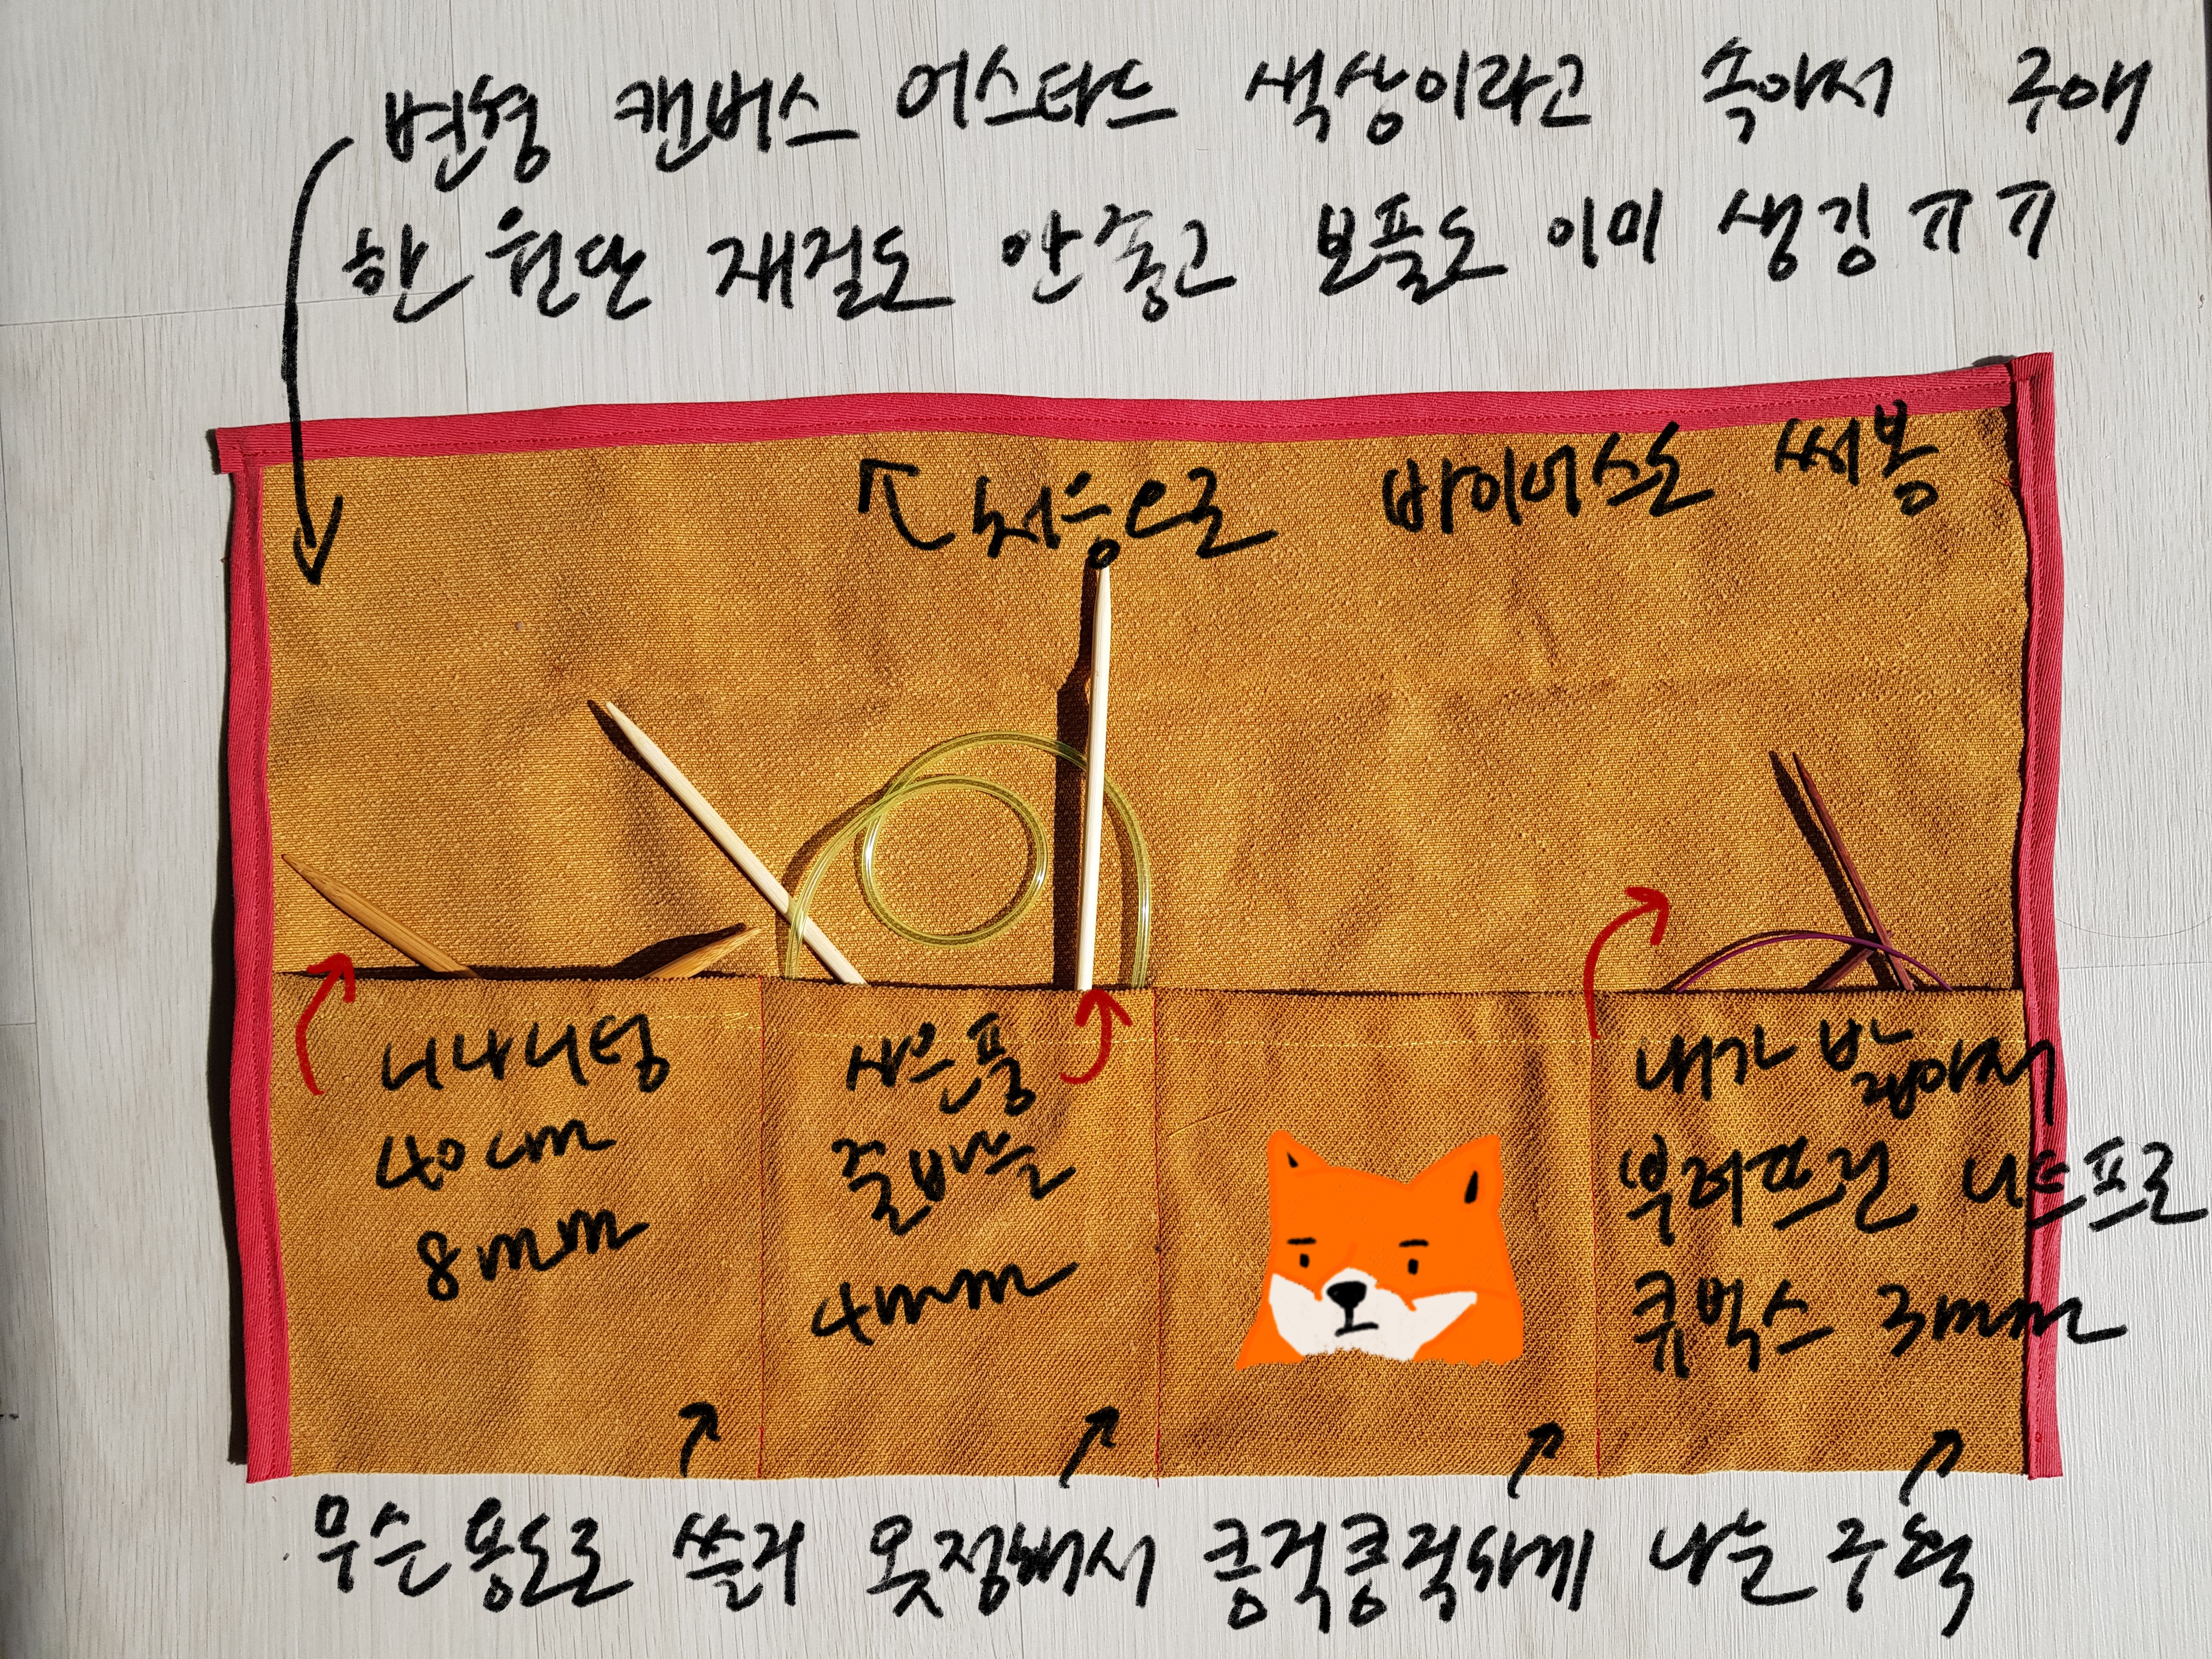 변형 캔버스 어스타드 색상이라고 속아서 구애
한 원단 재질도 안좋고 보풀도 이미 생김 ㅠㅠ
처음으로 바이어스도 써봄
니나니팅
40cm
8mm
사은품
줄바늘
4mm
내가 밟아서
부러뜨린 니트프로
큐빅스 3mm
무슨 용도로 쓸지 못정해서 큼직큼직하게 나눈 구획